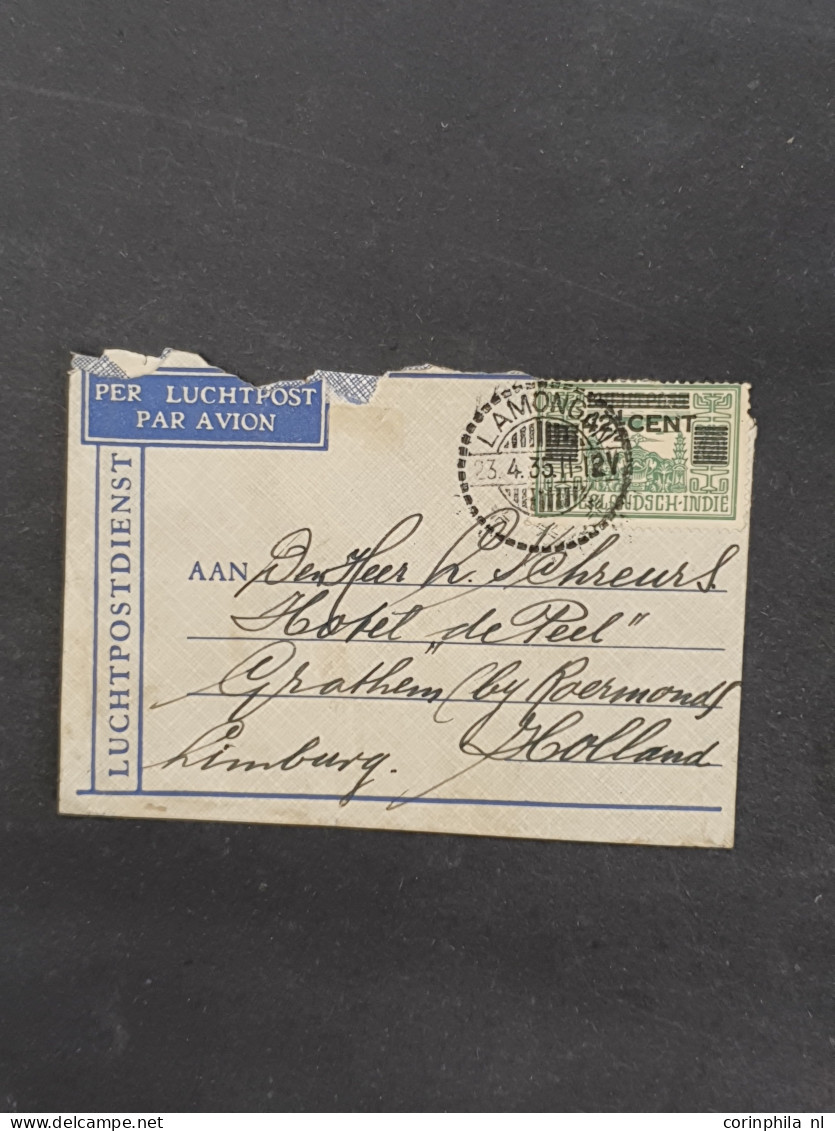 PER LUCHTPOST
PAR AVION
LUCHTPOSTDIENST
LAMONGAN
23.4.35.11-12V
CENT
NDSCH-INDIE
AAN Den Heer L. Schreurs.
Hotel „de Peel"
Grathem (by Roermond)
Holland
Limburg.
corinphila nl